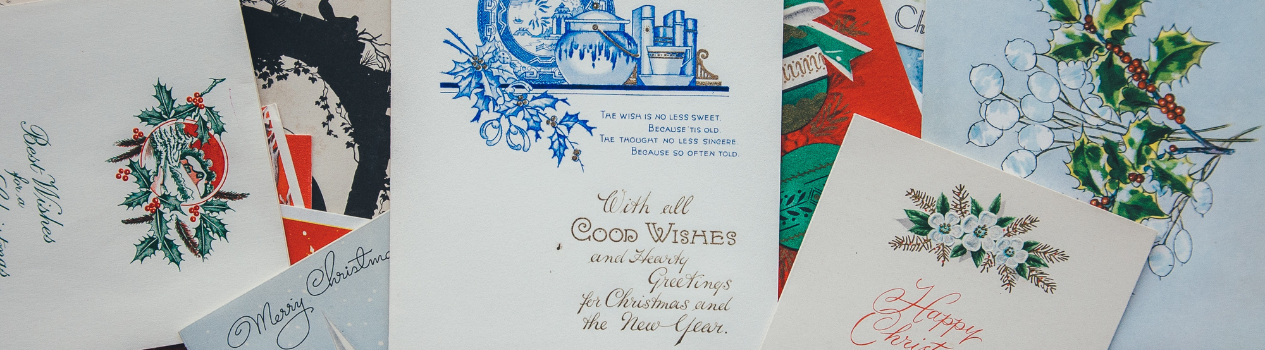 Best Wishes
for a
Christmas
Merry Christmas
THE WISH IS NO LESS SWEET,
BECAUSE 'TIS OLD.
THE THOUGHT NO LESS SINCERE
BECAUSE SO OFTEN TOLD.
With all
GOOD WISHES
and Hearty
Greetings
for Christmas and
the New Year.
Ch
Happy
Christ